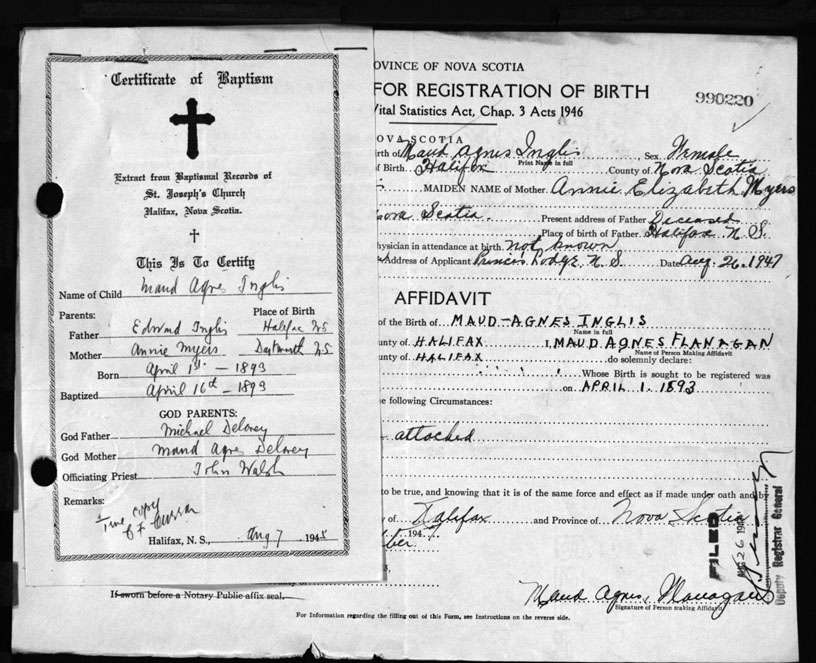 Certificate of Baptism
Extract from Baptismal Records of
St. Joseph's Church
Halifax, Nova Scotia.
This Is To Certify
Name of Child Maud Agnes Inglis
Parents: Place of Birth
Father Edward Inglis Halifax NS
Mother Annie Myers Dartmouth NS
Born April 1st — 1893
Baptized April 16th — 1893
GOD PARENTS:
God Father Michael Delorey
God Mother Maud Agnes Delorey
Officiating Priest John Walsh
Remarks:
True copy
Halifax, N. S., Aug 7 1945
If sworn before a Notary Public affix seal,
OVINCE OF NOVA SCOTIA
FOR REGISTRATION OF BIRTH
990220
ital Statistics Act, Chap. 3 Acts 1946
OVA SCOTIA
irth of Maud Agnes Inglis Sex Female
Print Name in full
of Birth Halifax County of Nova Scotia
MAIDEN NAME of Mother Annie Elizabeth Myers
Nova Scotia. Present address of Father Deceased
Place of birth of Father Halifax N.S.
hysician in attendance at birth not known
Address of Applicant Princes Lodge, N.S. Date Aug. 26. 1947
AFFIDAVIT
of the Birth of MAUD-AGNES INGLIS
Name in full
unty of HALIFAX I, MAUD AGNES FLANAGAN
Name of Person Making Affidavit
unty of HALIFAX do solemnly declare:
Whose Birth is sought to be registered was
on APRIL 1. 1893
e following Circumstances:
attached
to be true, and knowing that it is of the same force and effect as if made under oath and by
y of Halifax and Province of Nova Scotia
194
FILED
AUG 26 194
Deputy Registrar General
Maud Agnes Flanagan
Signature of Person making Affidavit
For Information regarding the filling out of this Form, see Instructions on the reverse side.